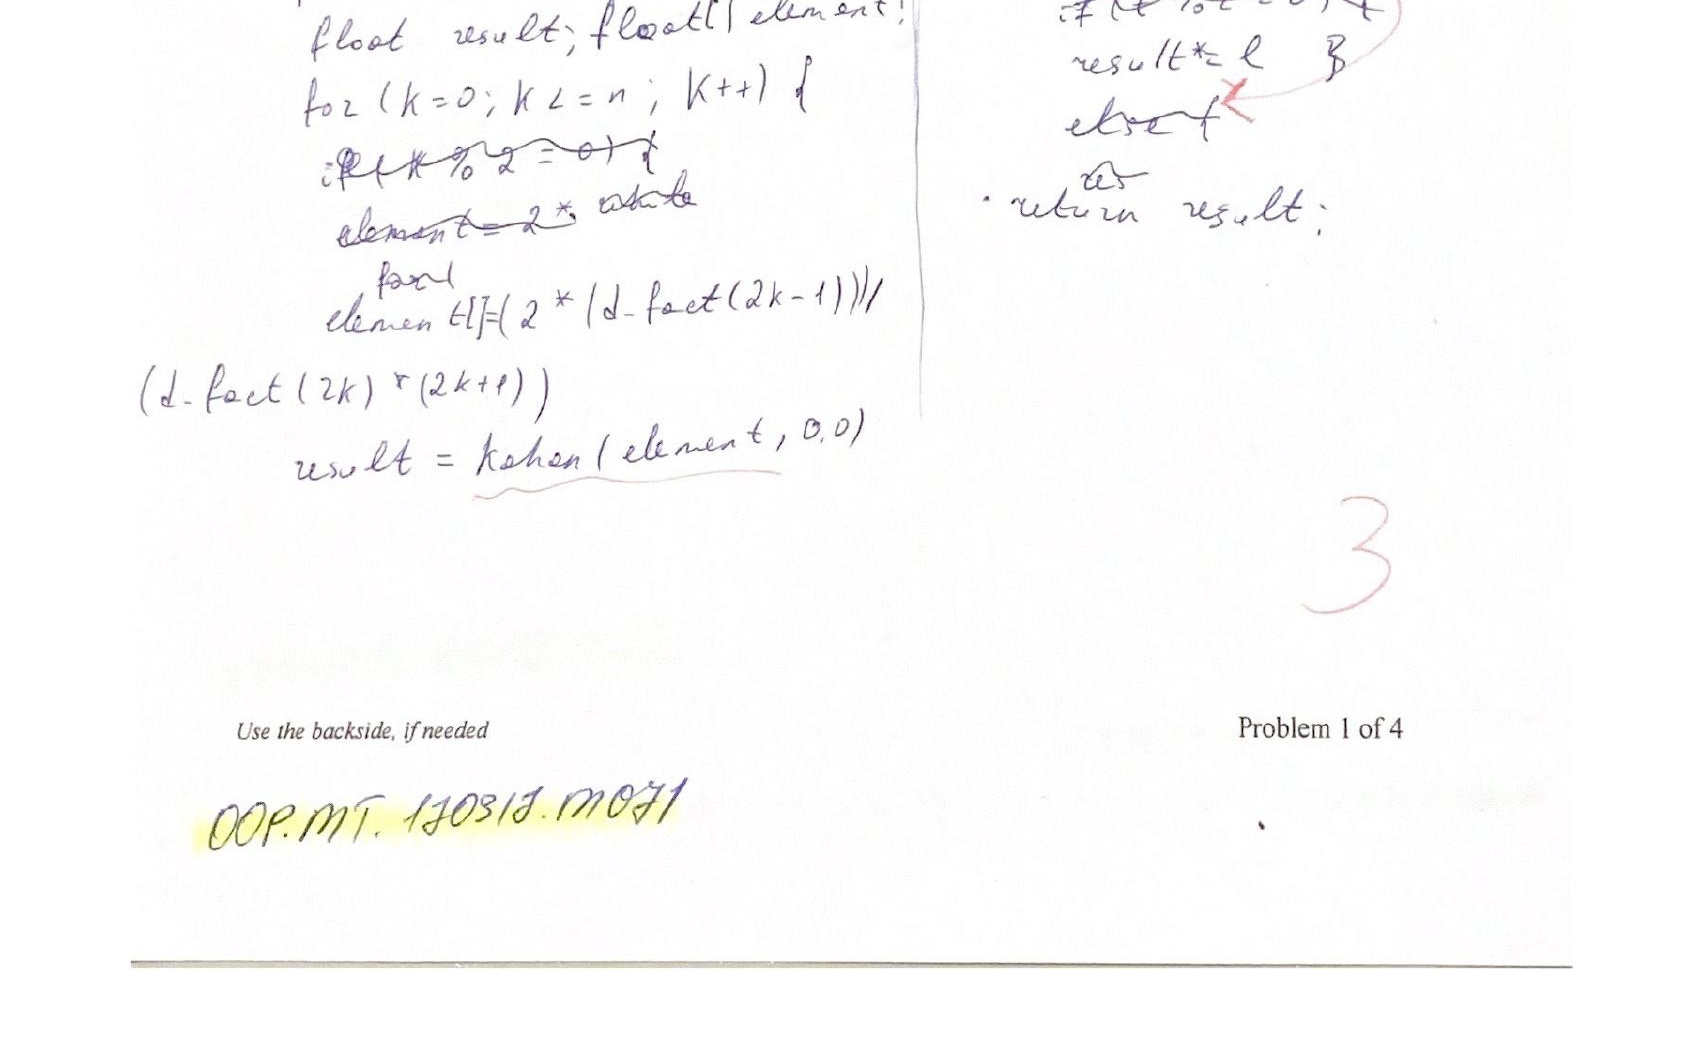 float result; float[] element;
for (k=0; k<=n; k++) {
if (k%2=0) {
element = 2*
element[]=(2*(d-fact(2k-1)))/
(d-fact(2k)*(2k+1))
result = kahan(element, 0.0)
result*= l }
else {
res
return result;
3
Use the backside, if needed
Problem 1 of 4
OOP.MT.170317.M071